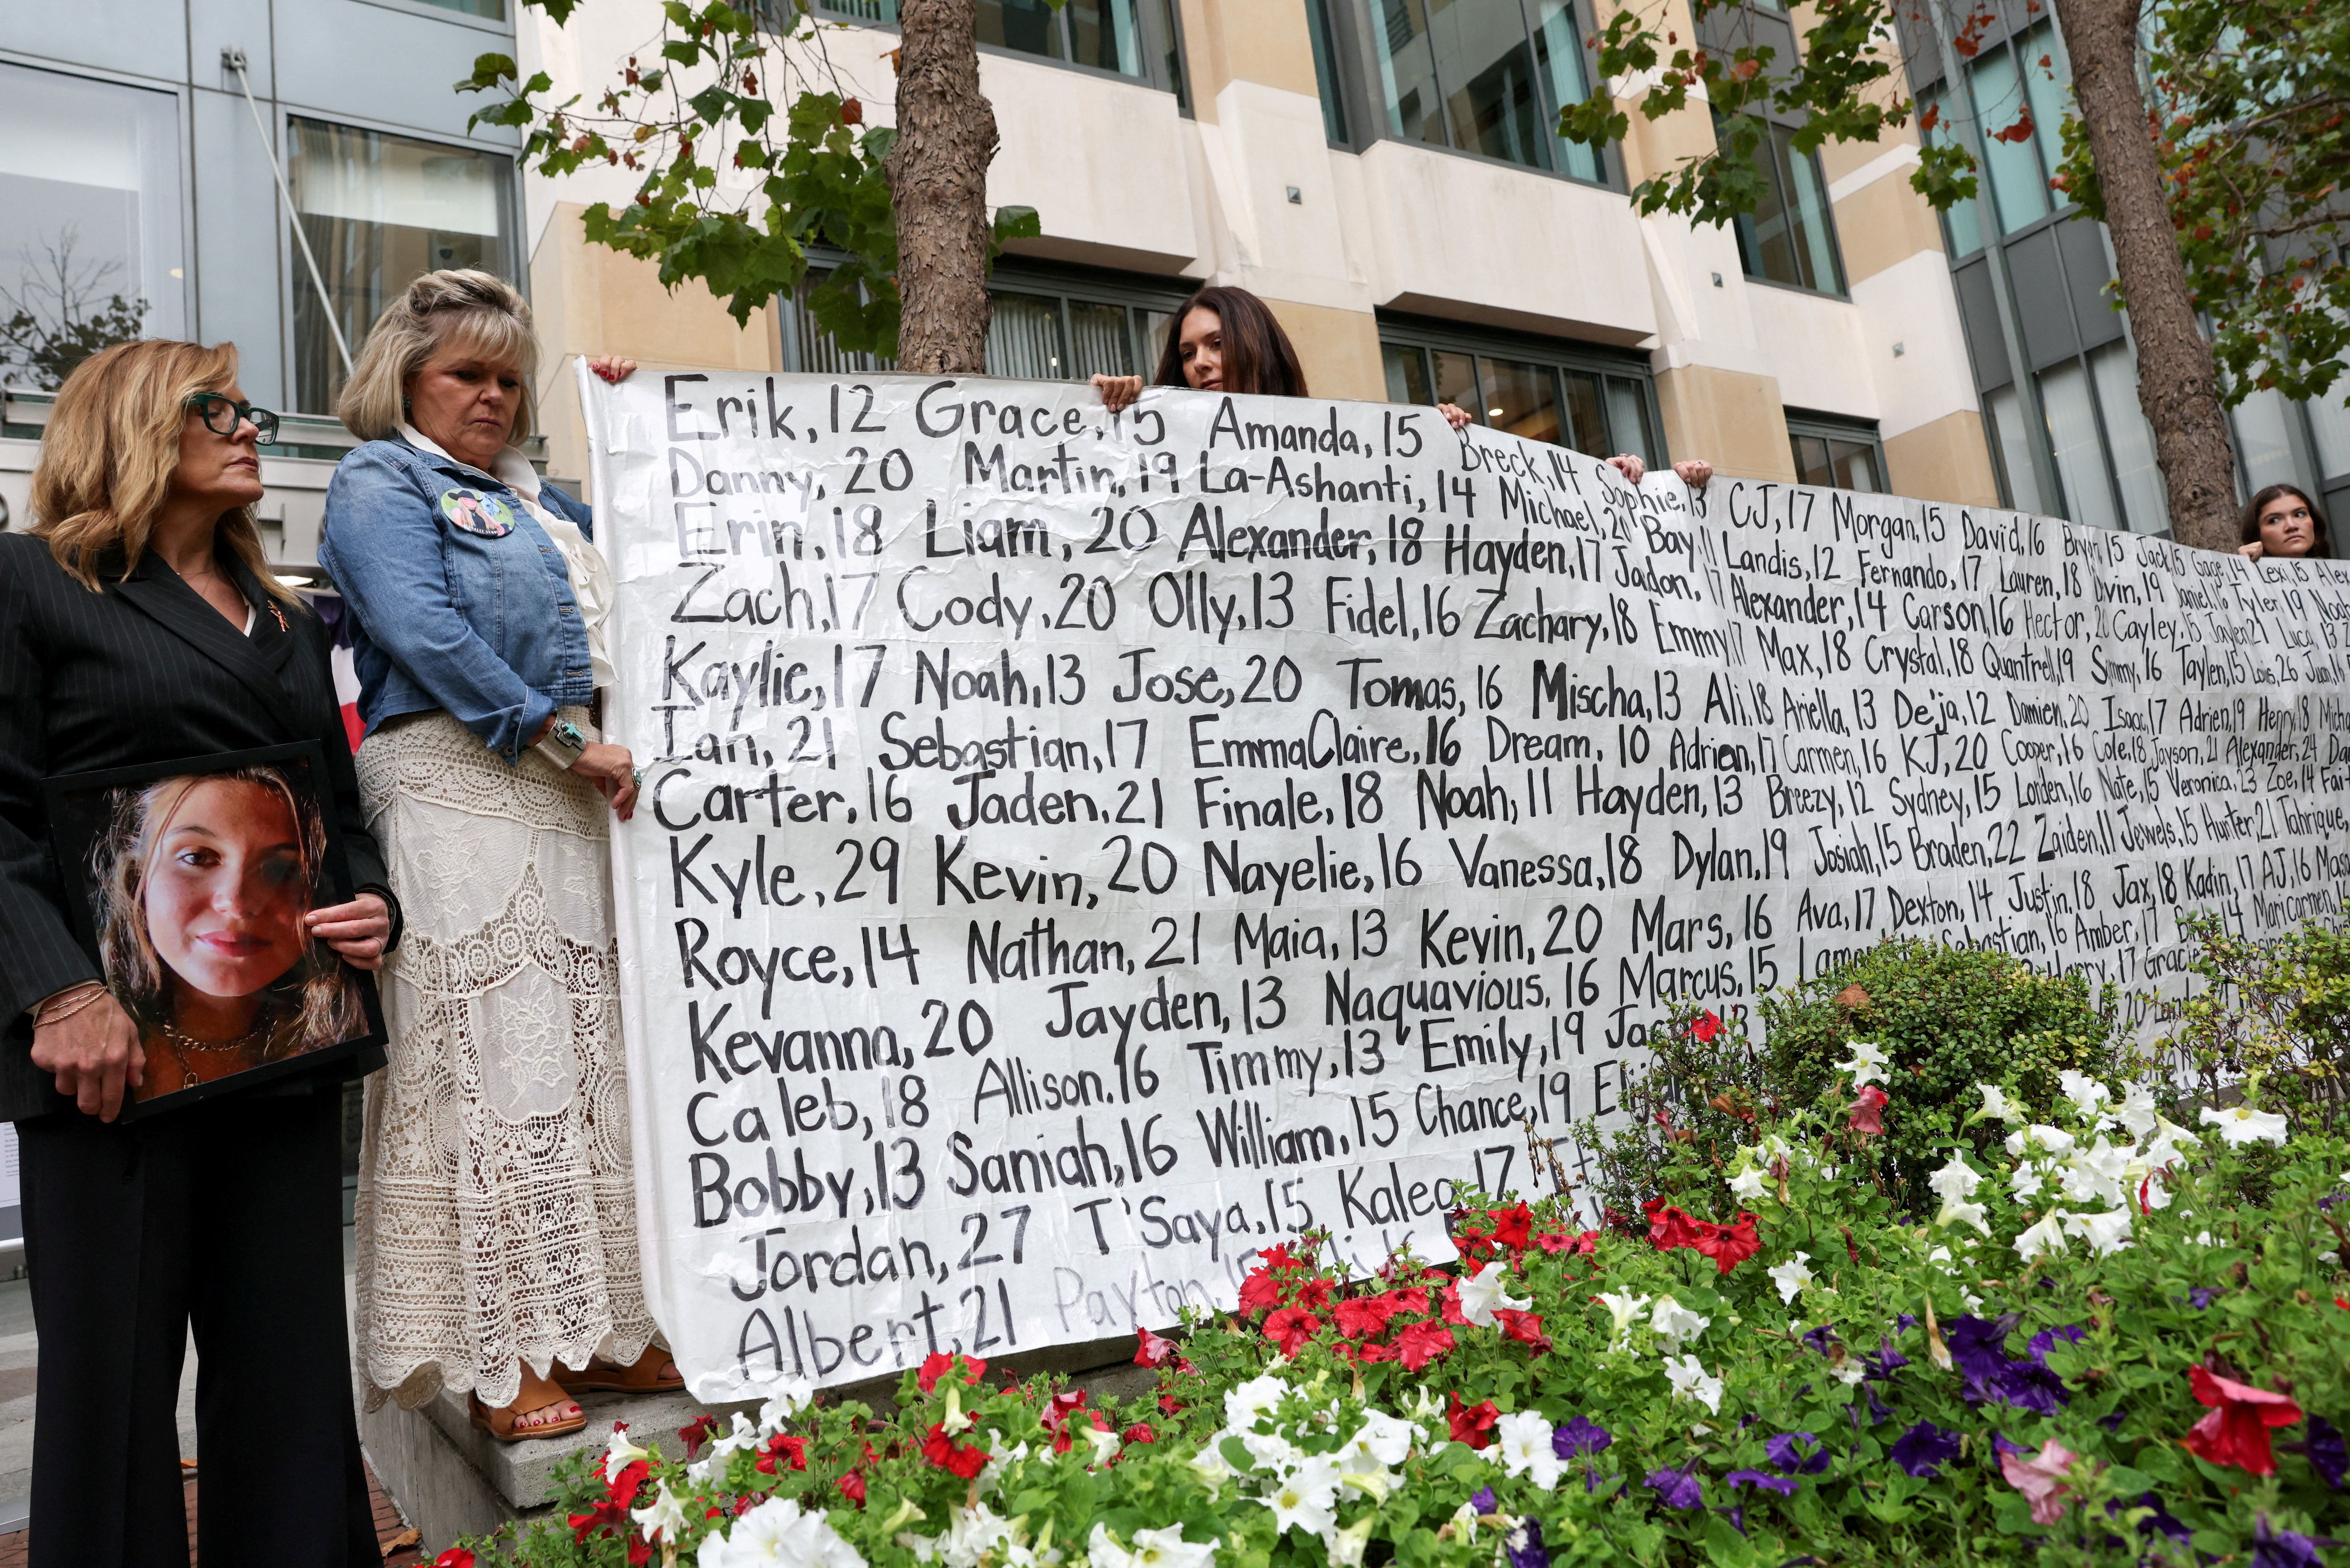 Erik, 12 Grace, 15 Amanda, 15 Breck, 14 Sophie, 13 CJ, 17 Morgan, 15 David, 16 15 Jack, 15 Gage, 14 Lexi, 15
Danny, 20 Martin, 19 La-Ashanti, 14 Michael, 20 Bay, 11 Landis, 12 Fernando, 17 Lauren, 18 19 Tyler, 19
Erin, 18 Liam, 20 Alexander, 18 Hayden, 17 Jadon, 17 Alexander, 14 Carson, 16 Hector, 20 Cayley, 15 Luca, 13
Zach, 17 Cody, 20 Olly, 13 Fidel, 16 Zachary, 18 Emmy, 17 Max, 18 Crystal, 18 Quantrell, 19 16 Taylen, 15
Kaylie, 17 Noah, 13 Jose, 20 Tomas, 16 Mischa, 13 Ali, 18 Ariella, 13 De'ja, 12 Damien, 20 Isaac, 17 Adrien, 19 Henry, 18
Ian, 21 Sebastian, 17 EmmaClaire, 16 Dream, 10 Adrien, 17 Carmen, 16 KJ, 20 Cooper, 16 Cole, 18 Jayson, 21 Alexander, 24
Carter, 16 Jaden, 21 Finale, 18 Noah, 11 Hayden, 13 Breezy, 12 Sydney, 15 Lorden, 16 Nate, 15 Veronica, 23 Zoe, 14
Kyle, 29 Kevin, 20 Nayelie, 16 Vanessa, 18 Dylan, 19 Josiah, 15 Braden, 22 Zaiden, 11 Jewels, 15 Hunter, 21
Royce, 14 Nathan, 21 Maia, 13 Kevin, 20 Mars, 16 Ava, 17 Dexton, 14 Justin, 18 Jax, 18 Kadin, 17 AJ, 16
Kevanna, 20 Jayden, 13 Naquavious, 16 Marcus, 15 Sebastian, 16 Amber, 17
Caleb, 18 Allison, 16 Timmy, 13 Emily, 19 Harry, 17
Bobby, 13 Saniah, 16 William, 15 Chance, 19
Jordan, 27 T'Saya, 15 17
Albert, 21 Payton,